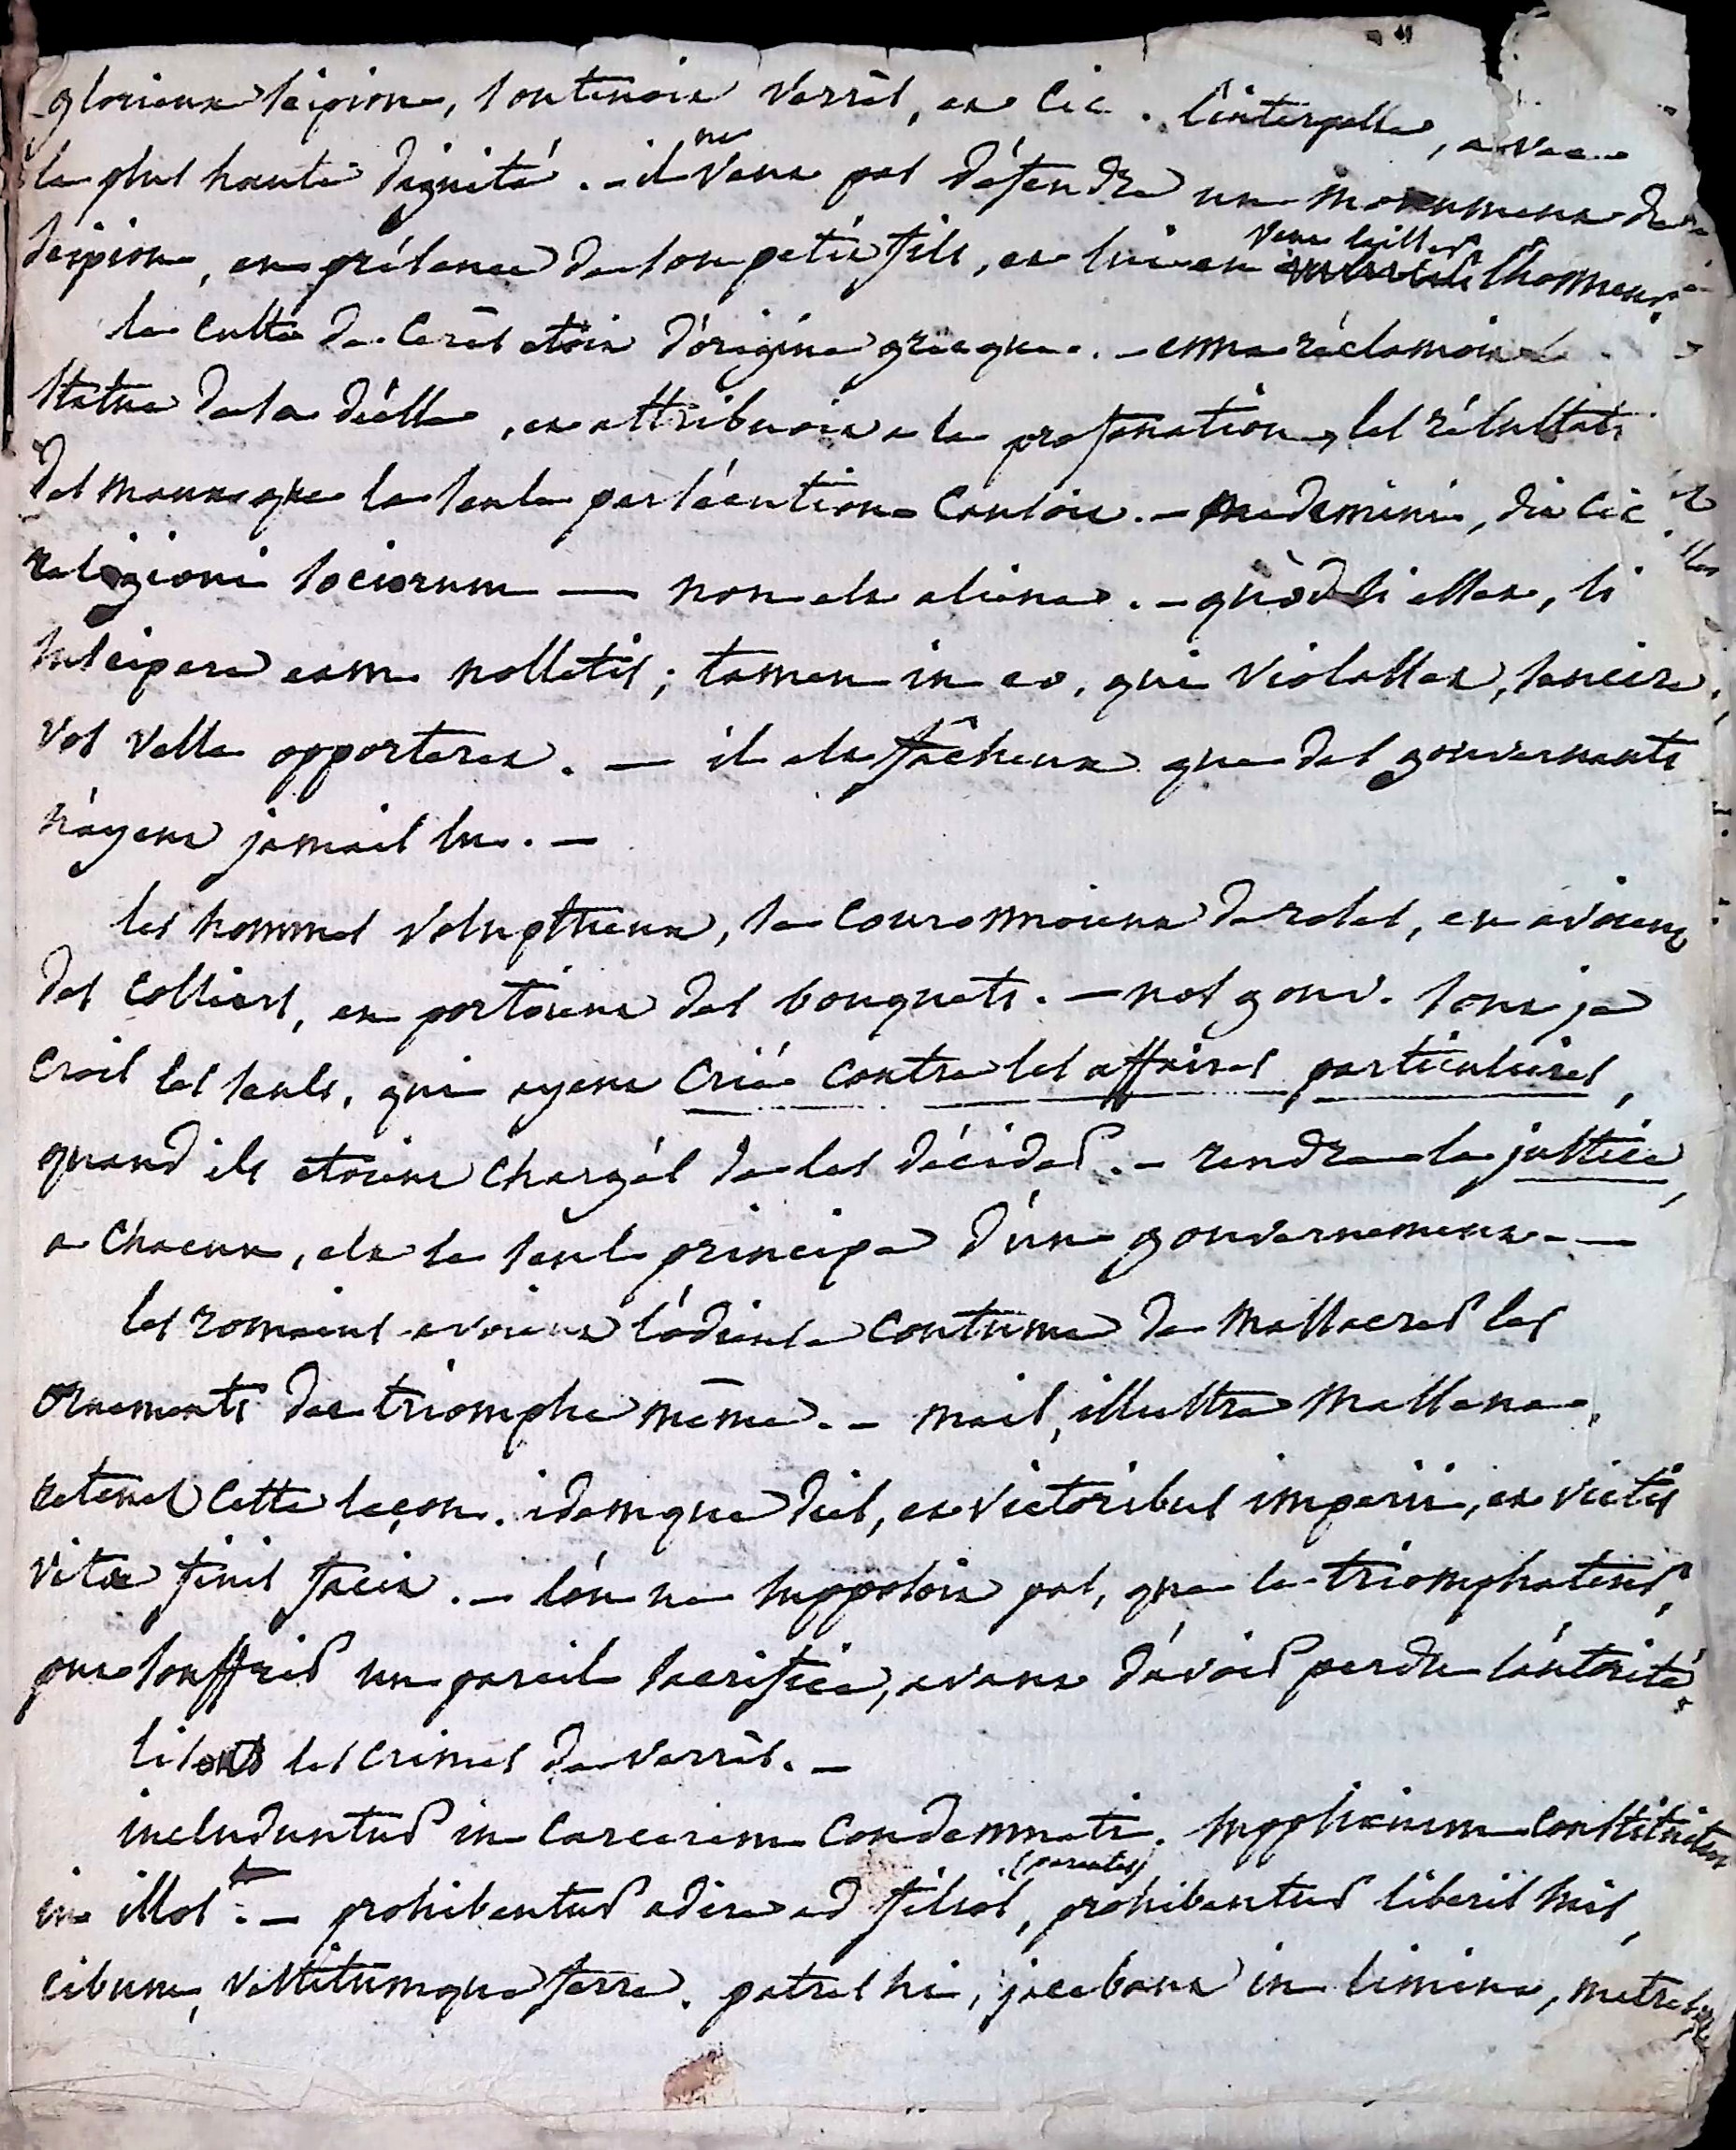 glorieux scipion, soutenoit Verrès, et Cic. l'interpelle, avec
la plus haute dignité. - il ne veut pas défendre un monument de
scipion, en présence de son petit fils, et lui en veut laisser l'honneur.
le culte de Cerès etoit d'origine grecque. - enna réclamoit la
statue de la déesse, et attribuoit a la profanation, les résultats
des maux que la seule persécution causoit. - medemini, dit Cic
religioni sociorum — non est aliena. - quòd si esset, si
suscipere eam nolletis; tamen in eo, qui violasset, sancire
vos velle opporteret. — il est fâcheux que des gouvernants
n'ayent jamais lu. -
les hommes voluptueux, se couronnoient de roses, en avoient
des colliers, en portoient des bouquets. - nos gouv. sont je
crois les seuls, qui ayent crié contre les affaires particulieres,
quand ils etoient chargés de les décider. - rendre la justice,
a chacun, est le seul principe d'un gouvernement. —
les romains avoient l'odieuse coutume de massacrer les
ornements de triomphe même. - mais, illustre Massena,
retenez cette leçon. idemque dies, et victoribus imperii, et victis
vitæ finis facit. - l'on ne supposoit pas, que le triomphateur,
put souffrir un pareil sacrifice, avant d'avoir perdu l'autorité.
lisons les crimes de Verrès. -
includuntur in carcerem condemnati. supplicium constituitur
in illos. - prohibentur adire ad filios, (parentes) prohibentur liberis suis,
cibum, vestitumque ferre. patres hi, jacebant in limine, matres